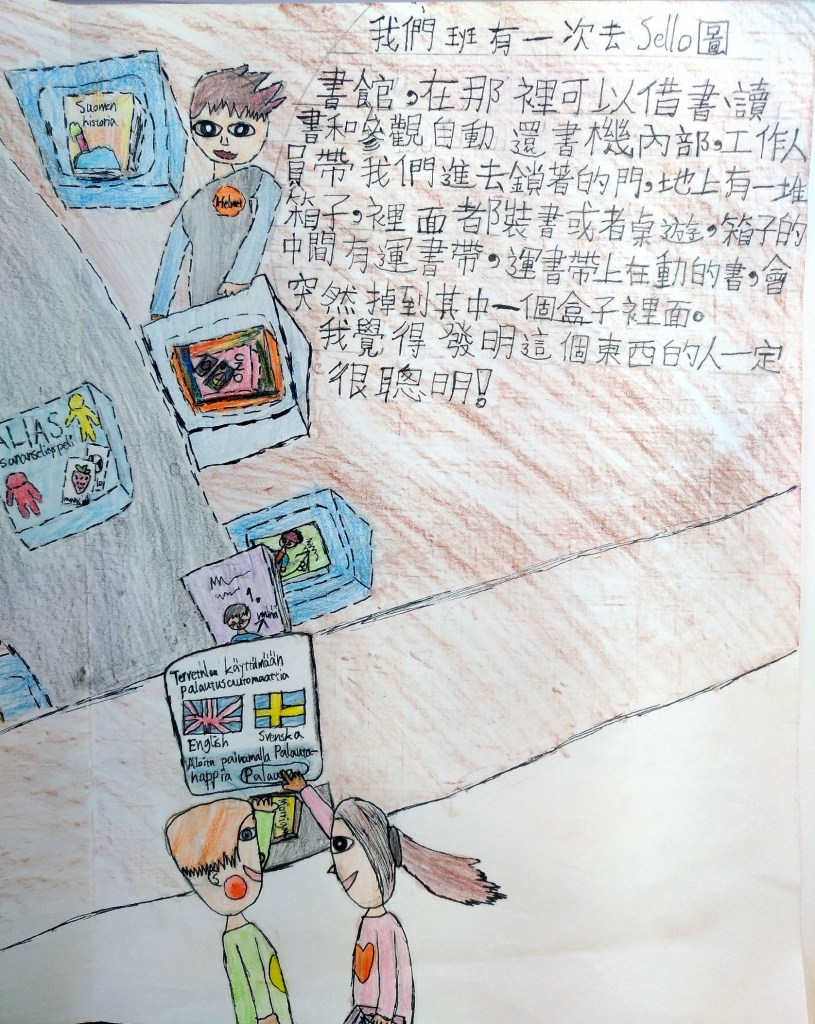 我們班有一次去Sello圖
書館，在那裡可以借書、讀
書和參觀自動還書機內部，工作人
員帶我們進去鎖著的門，地上有一堆
箱子，裡面都裝書或者桌遊，箱子的
中間有運書帶，運書帶上在動的書，會
突然掉到其中一個盒子裡面。
我覺得發明這個東西的人一定
很聰明！
Suomen
historia
Helmet
UNO
ALIAS
1.
Tervetuloa käyttämään
palautusautomaattia
English
Svenska
Aloita painamalla Palauta-
nappia